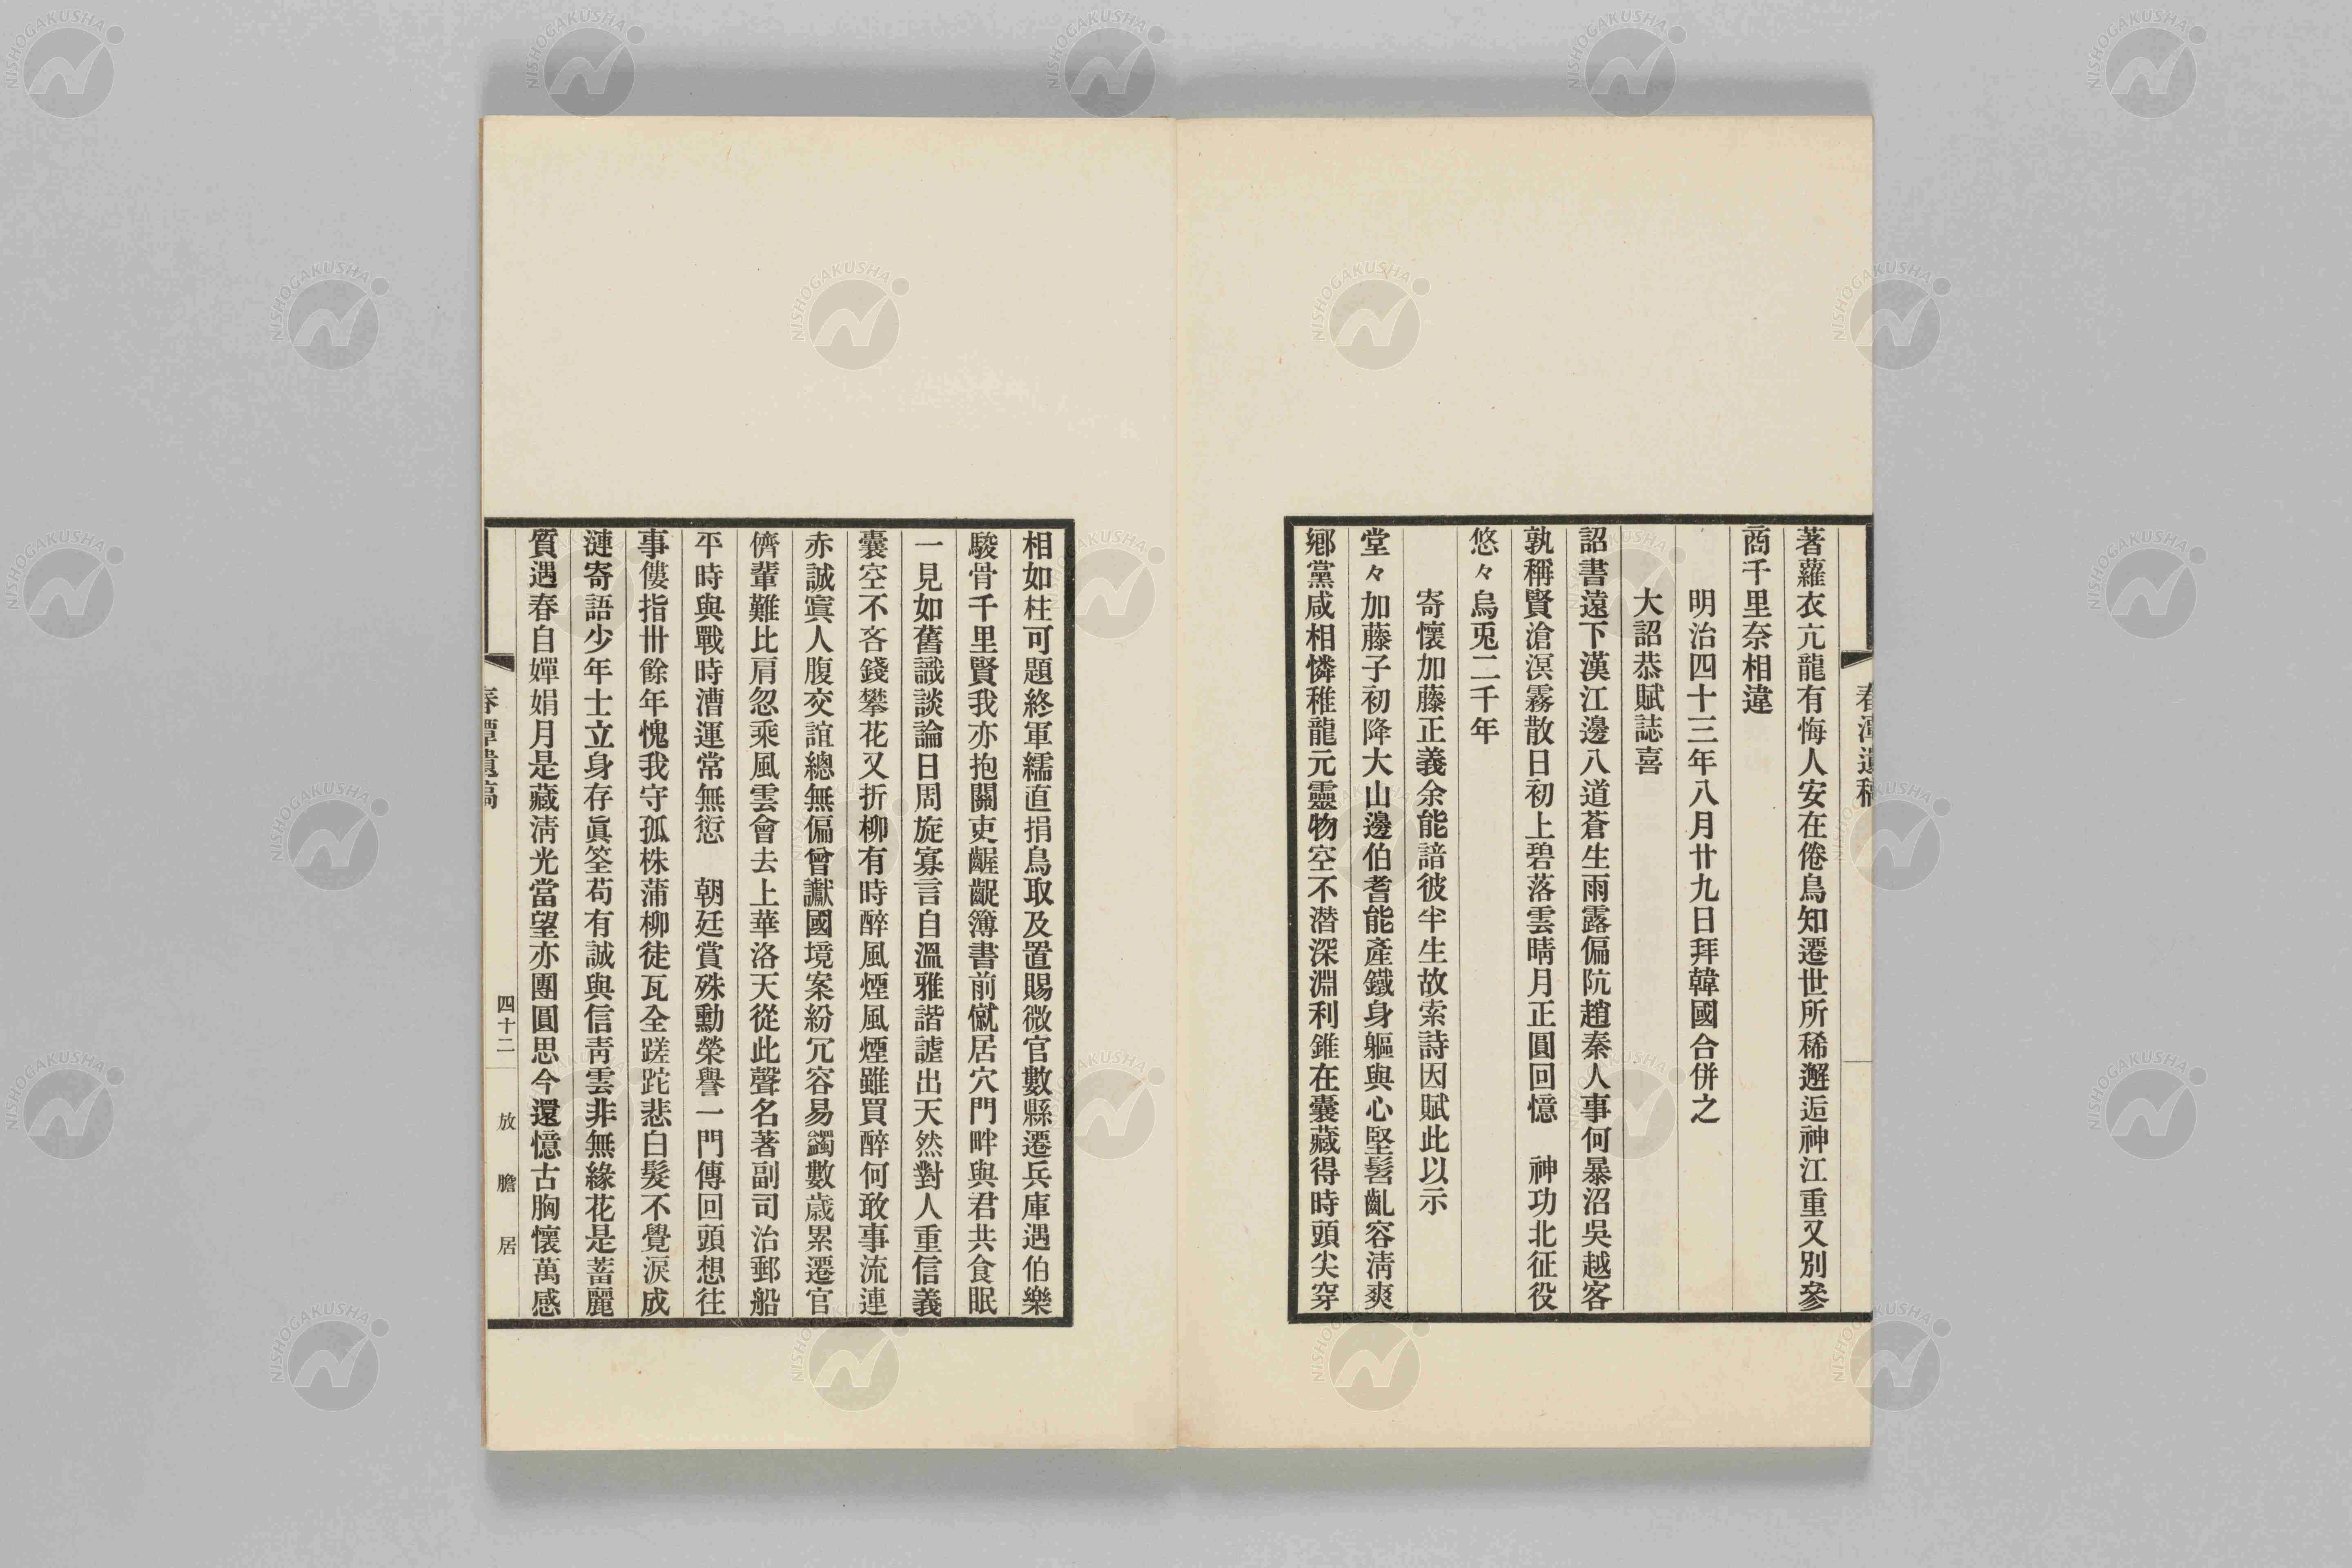 春潭遺稿
著蘿衣亢龍有悔人安在倦鳥知還世所稀邂逅神江重又別參
商千里奈相違
明治四十三年八月廿九日拜韓國合併之
大詔恭賦誌喜
詔書遠下漢江邊八道蒼生雨露偏阬趙秦人事何暴沼吳越客
孰稱賢滄溟霧散日初上碧落雲晴月正圓回憶　神功北征役
悠々烏兎二千年
寄懷加藤正義余能諳彼半生故索詩因賦此以示
堂々加藤子初降大山邊伯耆能產鐵身軀與心堅髫齔容淸爽
鄕黨咸相憐稚龍元靈物空不潛深淵利錐在囊藏得時頭尖穿
相如柱可題終軍繻直捐鳥取及置賜微官數縣遷兵庫遇伯樂
駿骨千里賢我亦抱關吏齷齪簿書前僦居穴門畔與君共食眠
一見如舊識談論日周旋寡言自溫雅諧謔出天然對人重信義
囊空不吝錢攀花又折柳有時醉風煙風煙雖買醉何敢事流連
赤誠寘人腹交誼總無偏曾讞國境案紛冗容易蠲數歲累遷官
儕輩難比肩忽乘風雲會去上華洛天從此聲名著副司治郵船
平時與戰時漕運常無愆　朝廷賞殊勳榮譽一門傳回頭想往
事僂指卅餘年愧我守孤株蒲柳徒瓦全蹉跎悲白髮不覺淚成
漣寄語少年士立身存眞筌苟有誠與信靑雲非無緣花是蓄麗
質遇春自嬋娟月是藏淸光當望亦團圓思今還憶古胸懷萬感
春潭遺稿
四十二
放膽居